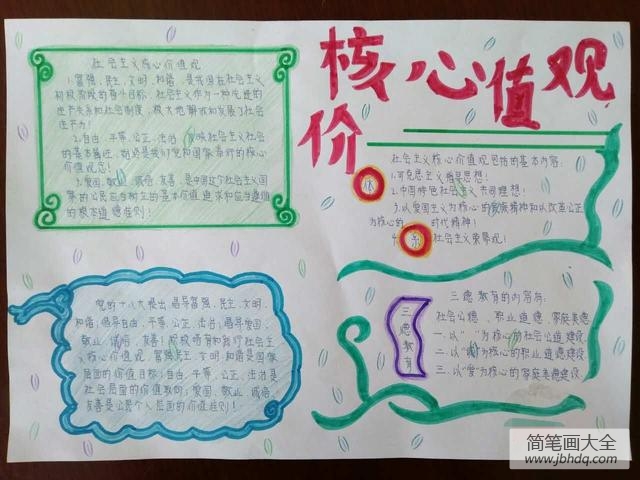 核心价值观
社会主义核心价值观
1.富强、民主、文明、和谐,是我国在社会主义
初级阶段的奋斗目标,社会主义作为一种先进的
生产关系和社会制度,极大地解放和发展了社会
生产力!
2.自由、平等、公正、法治,反映社会主义社会
的基本属性,始终是我们党和国家奉行的核心
价值观念!
3.爱国、敬业、诚信、友善,是中国这个社会主义国
家的公民应当树立的基本价值追求和应当遵循
的根本道德准则!
社会主义核心价值观包括的基本内容:
1.马克思主义指导思想!
2.中国特色社会主义共同理想!
3.以爱国主义为核心的民族精神和以改革
为核心的 时代精神!
4. 社会主义荣辱观!
体
系
党的十八大提出,倡导富强、民主、文明、
和谐,倡导自由、平等、公正、法治,倡导爱国、
敬业、诚信、友善,积极培育和践行社会主
义核心价值观,富强、民主、文明、和谐是国家
层面的价值目标,自由、平等、公正、法治是
社会层面的价值取向,爱国、敬业、诚信、
友善是公民个人层面的价值准则!
三德教育
三德教育的内容有:
社会公德、职业道德、家庭美德
一.以“ ”为核心的社会公道建设
二.以“ ”为核心的职业道德建设
三.以“爱”为核心的家庭美德建设
简笔画大全
www.jbhdq.com